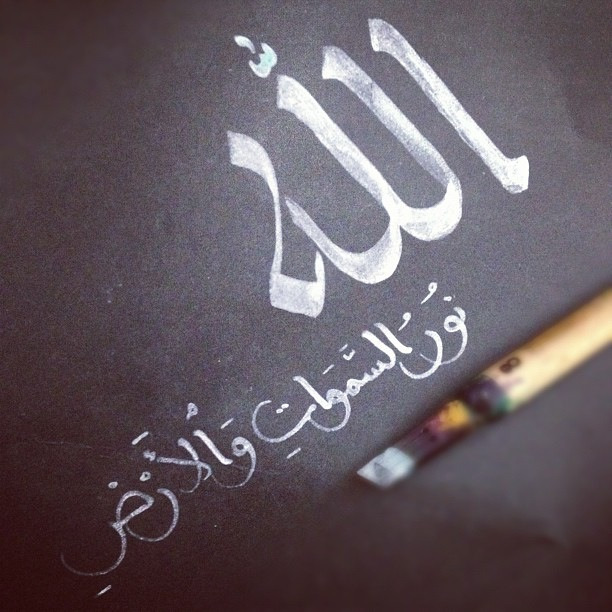 الله
نُورُ السَّمَوَاتِ وَالْأَرْضِ
8